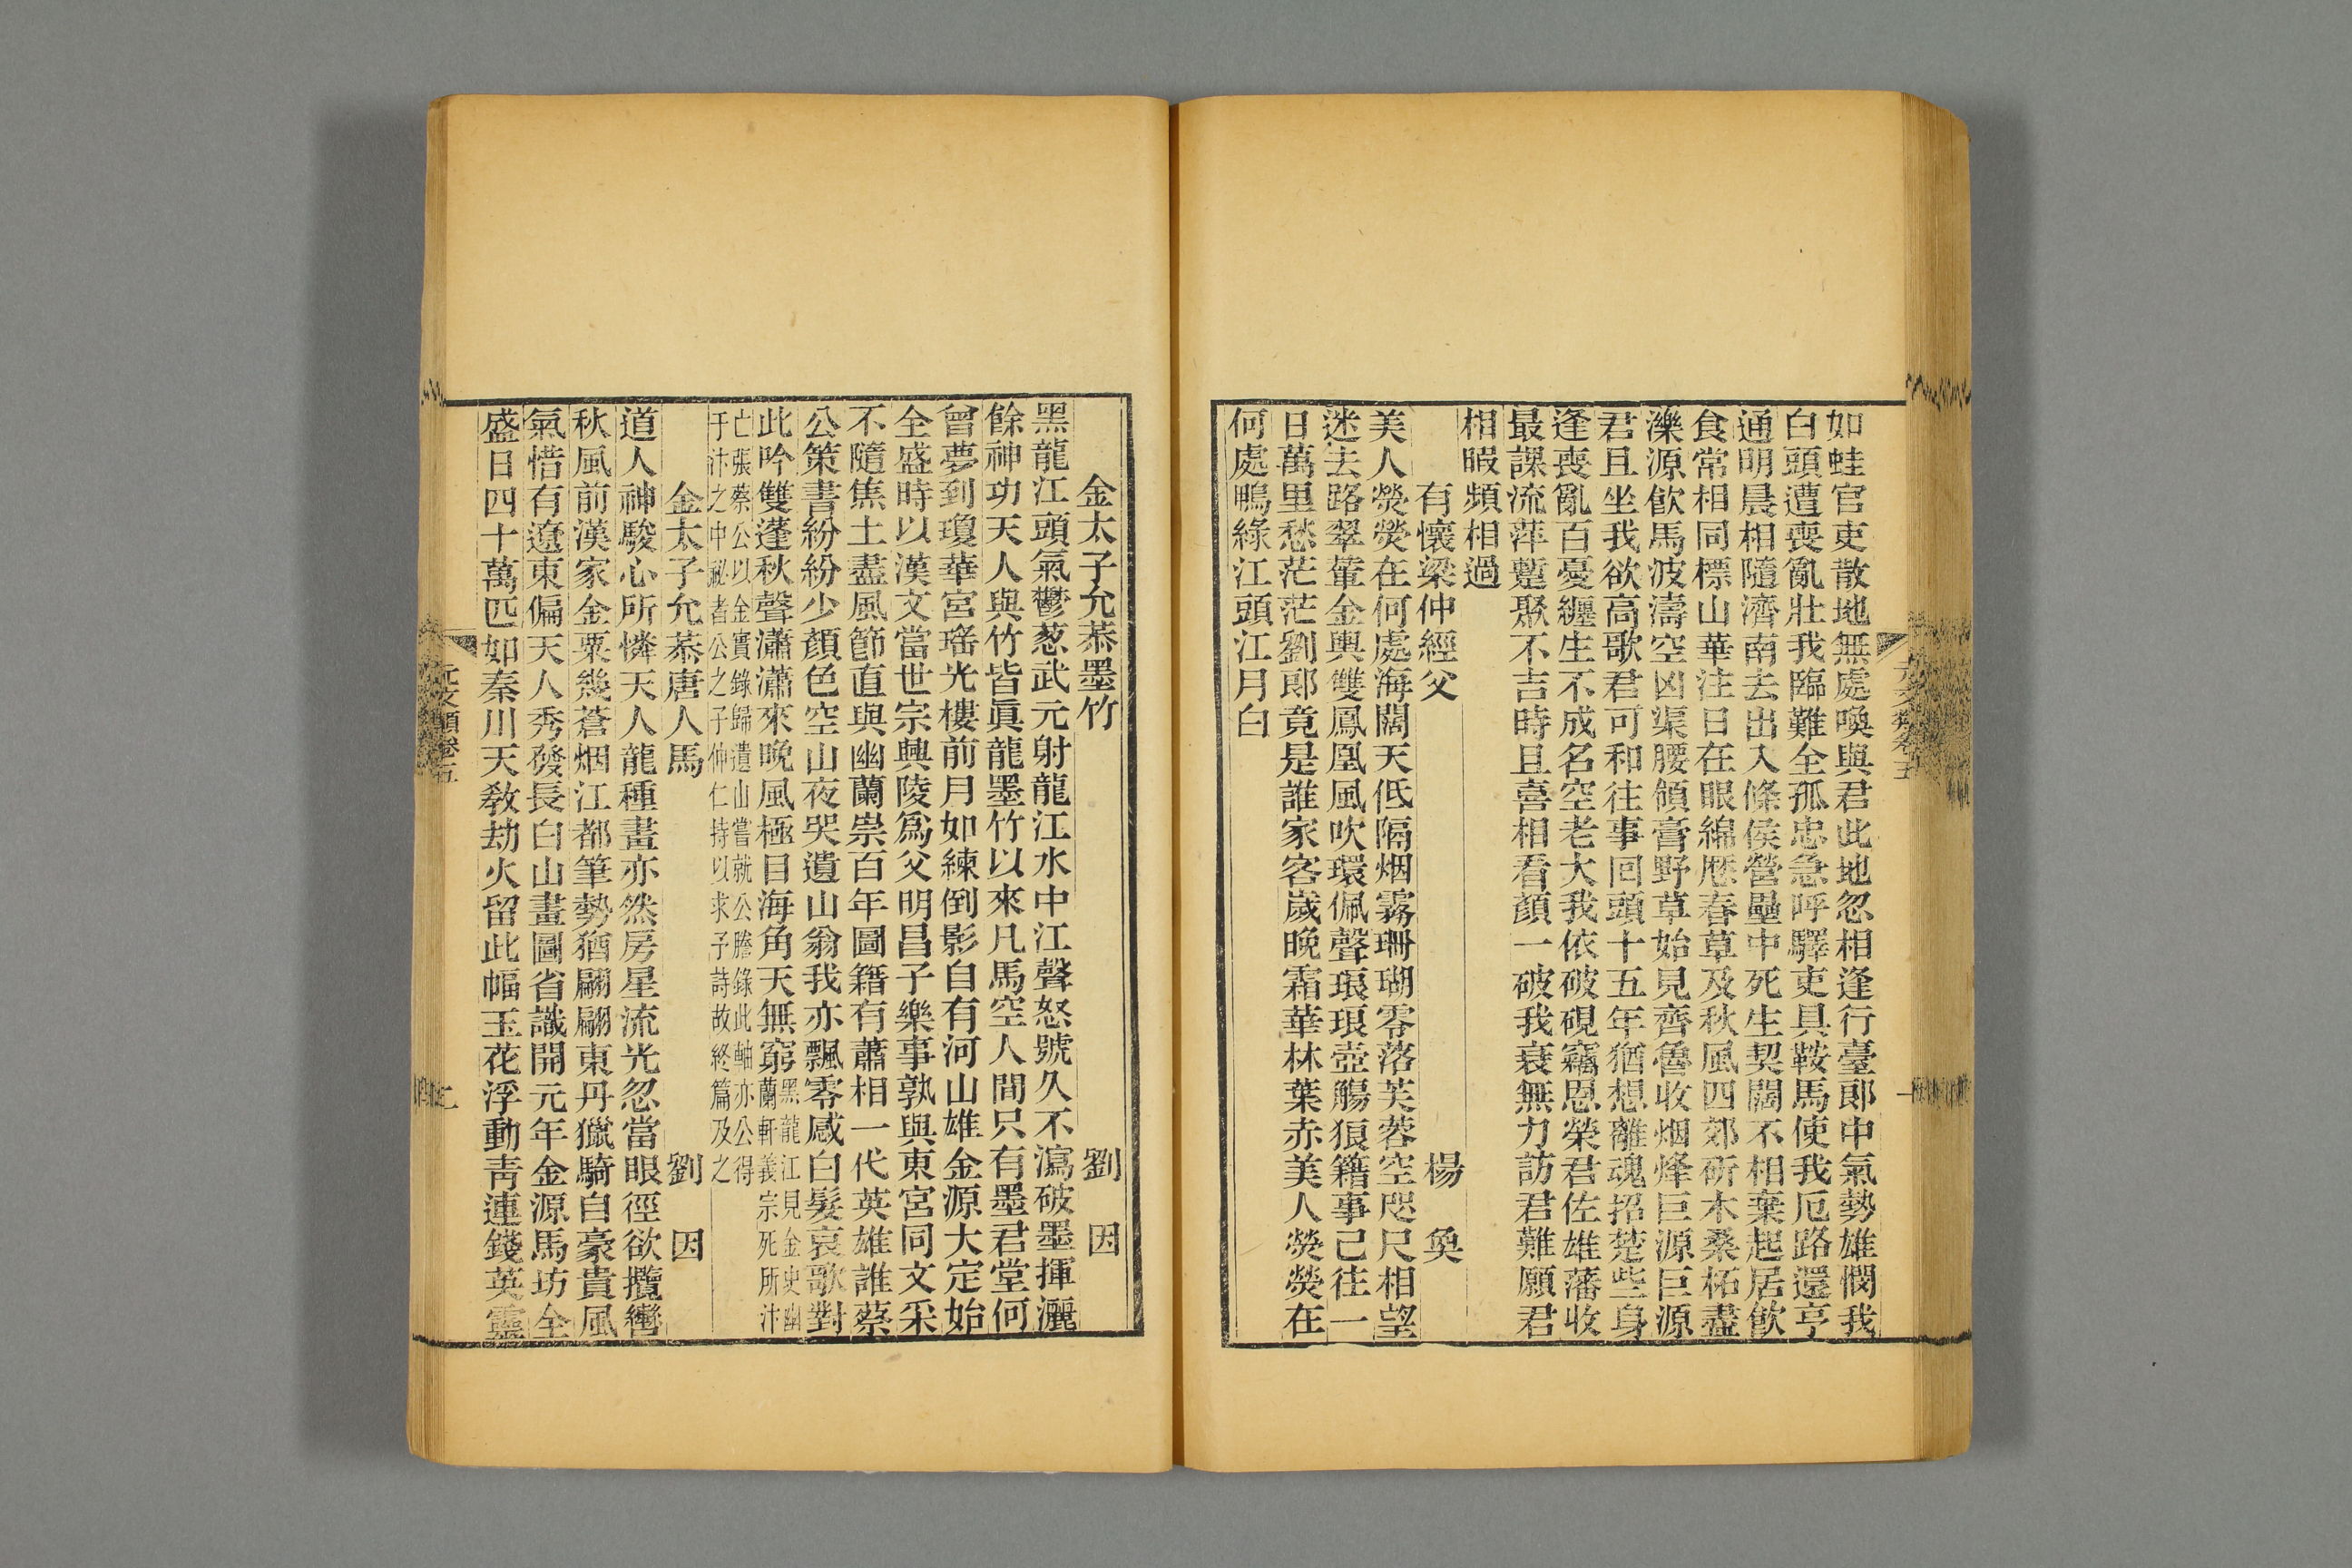 如蛙官吏散地無處喚與君此地忽相逢行臺郎中氣勢雄憫我
白頭遭喪亂壯我臨難全孤忠急呼驛吏具鞍馬使我厄路還亨
通明晨相隨濟南去出入條侯營壘中死生契闊不相棄起居飲
食常相同標山華注日在眼綿歷春草及秋風四郊斫木桑柘盡
濼源飲馬波濤空凶渠腰領膏野草始見齊魯收烟烽巨源巨源
君且坐我欲高歌君可和往事回頭十五年猶想離魂招楚些身
逢喪亂百憂纏生不成名空老大我依破硯竊恩榮君佐雄藩收
最課流萍蹔聚不吉時且喜相看顏一破我衰無力訪君難願君
相暇頻相過
有懷梁仲經父 楊奐
美人熒熒在何處海闊天低隔烟霧珊瑚零落芙蓉空咫尺相望
迷去路翠葷金輿雙鳳凰風吹環佩聲琅琅壺觴狼籍事已往一
日萬里愁茫茫劉郎竟是誰家客歲晚霜華林葉赤美人熒熒在
何處鴨綠江頭江月白
金太子允恭墨竹 劉因
黑龍江頭氣鬱葱武元射龍江水中江聲怒號久不瀉破墨揮灑
餘神功天人與竹皆眞龍墨竹以來凡馬空人間只有墨君堂何
曾夢到瓊華宮瑤光樓前月如練倒影自有河山雄金源大定始
全盛時以漢文當世宗興陵爲父明昌子樂事孰與東宮同文采
不隨焦土盡風節直與幽蘭崇百年圖籍有蕭相一代英雄誰蔡
公策書紛紛少顏色空山夜哭遺山翁我亦飄零感白髮哀歌對
此吟雙蓬秋聲瀟瀟來晚風極目海角天無窮黑龍江見金史幽
蘭軒義宗死所汴
亡張蔡公以金實錄歸遺山嘗就公謄錄此軸亦公得
于汴之中祕者公之子仲仁持以求予詩故終篇及之
金太子允恭唐人馬 劉因
道人神駿心所憐天人龍種畫亦然房星流光忽當眼徑欲攬轡
秋風前漢家金粟幾蒼烟江都筆勢猶翩翩東丹獵騎自豪貴風
氣惜有遼東偏天人秀發長白山畫圖省識開元年金源馬坊全
盛日四十萬匹如秦川天教劫火留此幅玉花浮動靑連錢英靈
元文類卷五